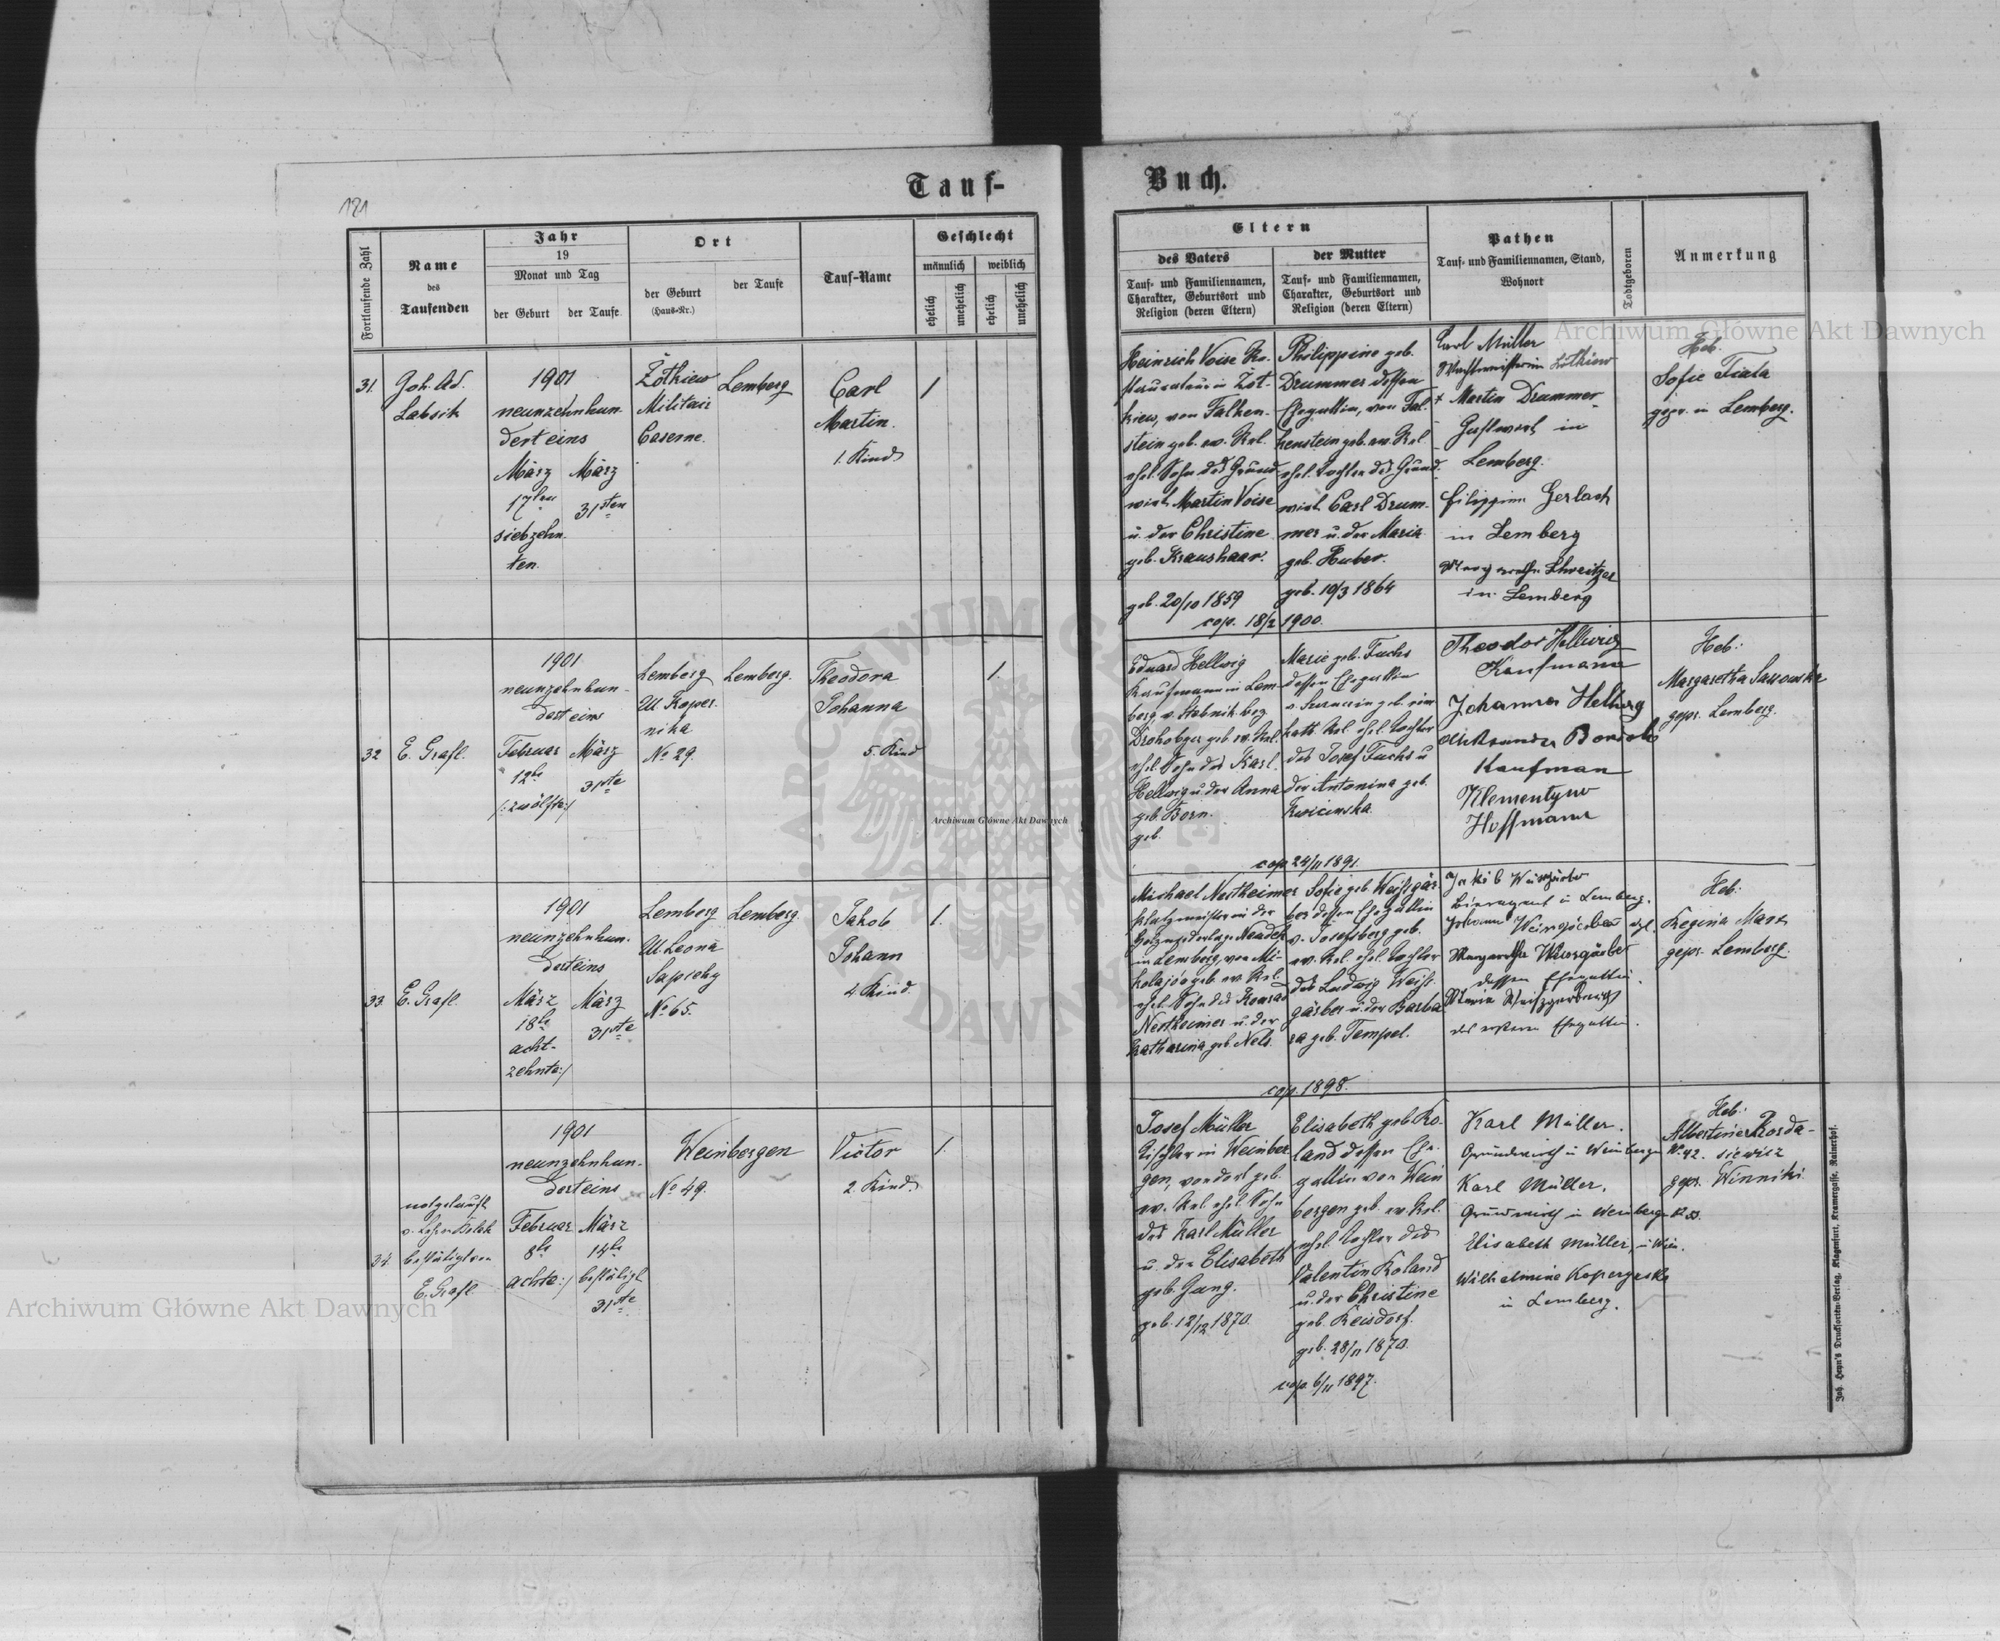 Tauf-
Buch.
121
Fortlaufende Zahl
Name
des
Taufenden
Jahr
19
Monat und Tag
der Geburt
der Taufe
Ort
der Geburt
(Haus-Nr.)
der Taufe
Tauf-Name
Geschlecht
männlich
weiblich
ehelich
unehelich
ehelich
unehelich
Eltern
des Vaters
Tauf- und Familiennamen,
Charakter, Geburtsort und
Religion (deren Eltern)
der Mutter
Tauf- und Familiennamen,
Charakter, Geburtsort und
Religion (deren Eltern)
Pathen
Tauf- und Familiennamen, Stand,
Wohnort
Todtgeboren
Anmerkung
31.
Joh. Ad.
Labsik
1901
neunzehnhun-
derteins
März
17ten
siebzehn-
ten.
März
31sten
Żółkiew
Militair
Caserne.
Lemberg
Carl
Martin.
1. Kind
1
Heinrich Voise
kiew, von Falken-
stein geb. ev. Rel.
ehel. Sohn des Grund-
wirt. Martin Voise
u. der Christine
geb. Kraushaar.
geb. 20/10 1859
Philippine geb.
Drummer dessen
Ehegattin, von Fal-
kenstein geb. ev. Rel.
ehel. Tochter des Grund-
wirt. Carl Drum-
mer u. der Maria
geb. Huber.
geb. 10/3 1864
cop. 18/2 1900.
Carl Müller
Martin Drummer
Gastwirth in
Lemberg.
Filippine Gerlach
in Lemberg
Schweitzer
in Lemberg
Heb.
Sofie Fiala
gepr. in Lemberg.
32
E. Grafl.
1901
neunzehnhun-
derteins
Februar
12te
/:zwölfte:/
März
31ste
Lemberg
Ul. Koper-
nika
No 29.
Lemberg.
Theodora
Johanna
5. Kind
1.
Eduard Hellwig
Kaufmann in Lem-
berg v. Stebnik bez
Drohobycz geb. ev. Rel.
ehel. Sohn des Karl
Hellwig u. der Anna
geb. Born.
geb.
Marie geb. Fuchs
dessen Ehegattin
kath. Rel. ehel. Tochter
des Josef Fuchs u
der Antonina geb.
cop. 24/11 1891.
Theodor Hellwig
Kaufmann
Johanna Hellwig
Kaufman
Klementyne
Hoffmann
Heb.:
Margaretha
gepr. Lemberg.
33
E. Grafl.
1901
neunzehnhun-
derteins
März
18te
acht-
zehnte:/
März
31ste
Lemberg
Ul. Leona
Sapiehy
No 65.
Lemberg.
Jakob
Johann
4. Kind.
1.
Michael Nestheimer
Platzmeister in der
in Lemberg, von Mi-
kolajów geb. ev. Rel.
ehel. Sohn des Konrad
Nestheimer u. der
Katharina geb. Nels.
Sofie geb. Weißgär-
ber dessen Ehegattin
v. Josefsberg geb.
ev. Rel. ehel. Tochter
des Ludwig Weiß-
gärber u. der Barba-
ra geb. Tempel.
cop. 1898.
in Lemberg.
dessen Ehegattin.
Heb:
Regina Marx
gepr. Lemberg.
34
notgetauft
bestätigt von
E. Grafl
1901
neunzehnhun-
derteins
Februar
8te
achte:/
März
14te
bestätigt
31ste
Weinbergen
No 49.
Victor
2. Kind.
1.
Josef Müller
Tischler in Weinber-
gen, von dort geb.
ev. Rel. ehel. Sohn
des Karl Müller
u. der Elisabeth
geb. Gang.
geb. 12/12 1870.
Elisabeth geb. Ro-
land dessen Ehe-
gattin von Wein-
bergen geb. ev. Rel.
ehel. Tochter des
Valentin Roland
u. der Christine
geb. Reisdorf.
geb. 28/11 1870.
cop. 6/11 1897.
Karl Müller.
Grundwirth in Weinbergen No 42.
Karl Müller.
Grundwirth in Weinbergen
Elisabeth Müller, in Wien.
Wilhelmine
in Lemberg.
Heb.:
Albertine
gepr. Winniki
Joh. Heyn's Drucksorten-Verlag, Klagenfurt, Kramergasse, Rainerhof.
Archiwum Główne Akt Dawnych
Archiwum Główne Akt Dawnych
Archiwum Główne Akt Dawnych